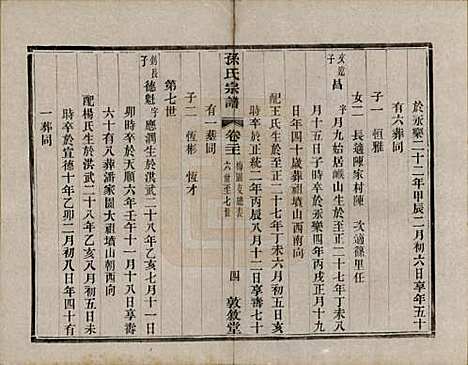 於永樂二十二年甲辰二月初六日享年五十
有六葬同
子一 恆雅
女二 長適陳家村陳 次適篠里任
文遠子 昌 字月九始居嵊山生於至正二十七年丁未八
月十五日子時卒於永樂四年丙戌正月十九
日年四十歲葬祖墳山西南向
配王氏生於至正二十七年丁未六月初五日亥
時卒於正統二年丙辰八月十二日享壽七十
有一葬同
子二 恆彬 恆才
孫氏宗譜
卷三
六世至七世
四
敦敘堂
第七世
劍長子 德魁 字應潤生於洪武二十八年乙亥五月十一日
卯時卒於天順六年壬午十一月十八日享壽
六十有八葬潘家園大祖墳山朝西向
配楊氏生於洪武二十八年乙亥八月初五日未
時卒於宣德十年乙卯二月初八日年四十有
一葬同